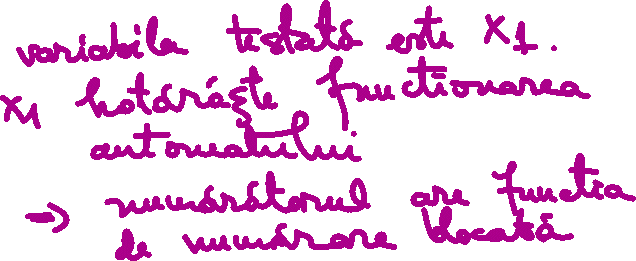 variabila testată este x1.
x1 hotărăște functionarea
automatului
→ numărătorul are functia
de numărare blocată